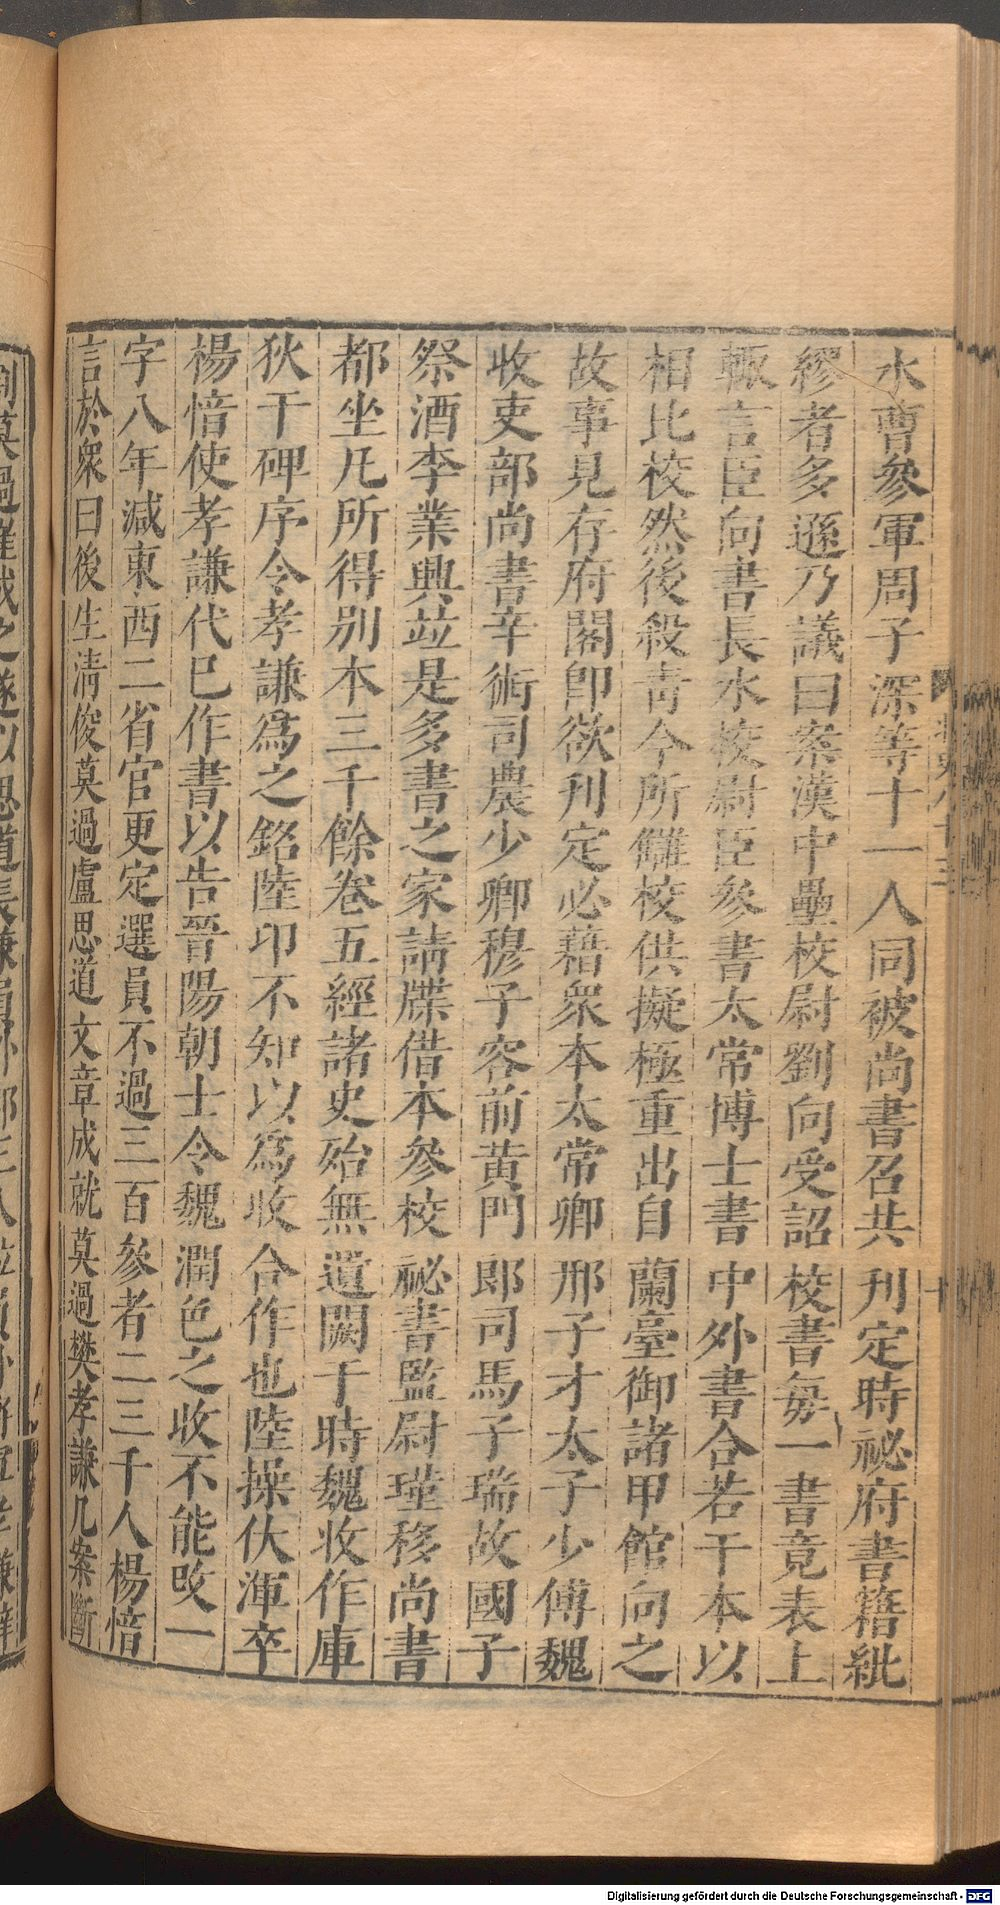 水曹參軍周子深等十一人同被尚書召共刋定時祕府書籍紕
繆者多遜乃議曰案漢中壘校尉劉向受詔校書每一書竟表上
輒言臣向書長水校尉臣參書太常博士書中外書合若干本以
相比校然後殺青今所讎校供擬極重出自蘭臺御諸甲館向之
故事見存府閣卽欲刋定必藉衆本太常卿邢子才太子少傅魏
收吏部尚書辛術司農少卿穆子容前黄門郎司馬子瑞故國子
祭酒李業興竝是多書之家請牒借本參校祕書監尉瑾移尚書
都坐凡所得别本三千餘卷五經諸史殆無遺闕于時魏收作庫
狄干碑序令孝謙爲之銘陸卬不知以爲收合作也陸操仄渾卒
楊愔使孝謙代巳作書以告晉陽朝士令魏潤色之收不能改一
字八年減東西二省官更定選員不過三百參者二三千人楊愔
言於衆曰後生清俊莫過盧思道文章成就莫過樊孝謙几案斷
Digitalisierung gefördert durch die Deutsche Forschungsgemeinschaft - DFG